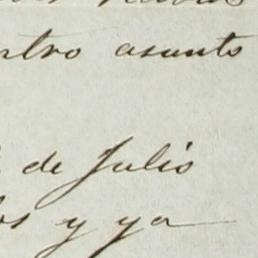 ntro asunto
de Julio
los y ya